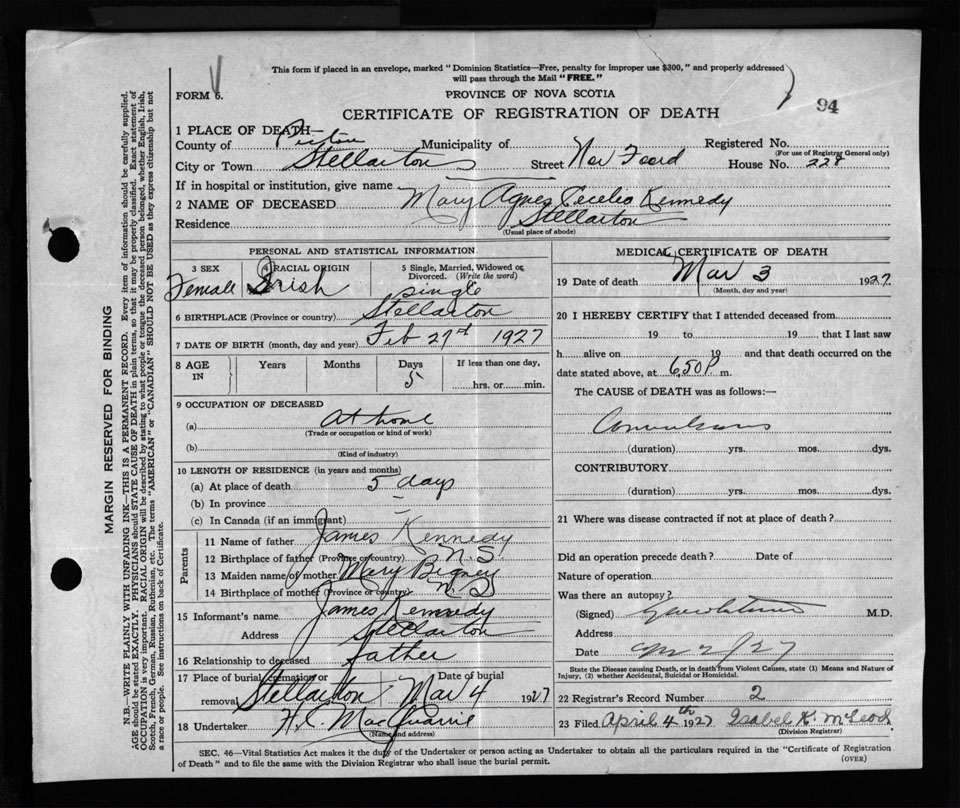 This form if placed in an envelope, marked "Dominion Statistics—Free, penalty for improper use $300," and properly addressed
will pass through the Mail "FREE."
FORM 6.
PROVINCE OF NOVA SCOTIA
94
CERTIFICATE OF REGISTRATION OF DEATH
1 PLACE OF DEATH—
County of Pictou Municipality of Registered No.
(For use of Registrar General only)
City or Town Stellarton Street House No. 228
If in hospital or institution, give name
2 NAME OF DECEASED Mary Agnes Kennedy
Residence Stellarton
(Usual place of abode)
PERSONAL AND STATISTICAL INFORMATION
3 SEX 4 RACIAL ORIGIN 5 Single, Married, Widowed or
Divorced. (Write the word)
Female Irish single
6 BIRTHPLACE (Province or country) Stellarton
7 DATE OF BIRTH (month, day and year) Feb 1927
8 AGE IN Years Months Days If less than one day,
5 hrs. or min.
9 OCCUPATION OF DECEASED
(a) At home
(Trade or occupation or kind of work)
(b)
(Kind of industry)
10 LENGTH OF RESIDENCE (in years and months)
(a) At place of death 5 days
(b) In province —
(c) In Canada (if an immigrant) —
Parents
11 Name of father James Kennedy
12 Birthplace of father (Province or country) N.S.
13 Maiden name of mother Mary
14 Birthplace of mother (Province or country) N.S
15 Informant's name James Kennedy
Address Stellarton
16 Relationship to deceased father
17 Place of burial, cremation or Date of burial
removal Stellarton Mar 4 1927
18 Undertaker H.C. MacQuarrie
(Name and address)
MEDICAL CERTIFICATE OF DEATH
19 Date of death Mar 3 1927
(Month, day and year)
20 I HEREBY CERTIFY that I attended deceased from
19 to 19 that I last saw
h alive on 19 and that death occurred on the
date stated above, at 6.50 P m.
The CAUSE of DEATH was as follows:—
Convulsions
(duration) yrs. mos. dys.
CONTRIBUTORY
(duration) yrs. mos. dys.
21 Where was disease contracted if not at place of death?
Did an operation precede death? Date of
Nature of operation
Was there an autopsy?
(Signed) M.D.
Address
Date
State the Disease causing Death, or in death from Violent Causes, state (1) Means and Nature of
Injury, (2) whether Accidental, Suicidal or Homicidal.
22 Registrar's Record Number 2
23 Filed April 4th 1927 Isabel K. McLeod
(Division Registrar)
SEC. 46—Vital Statistics Act makes it the duty of the Undertaker or person acting as Undertaker to obtain all the particulars required in the "Certificate of Registration
of Death" and to file the same with the Division Registrar who shall issue the burial permit.
(OVER)
MARGIN RESERVED FOR BINDING
N.B.—WRITE PLAINLY WITH UNFADING INK—THIS IS A PERMANENT RECORD. Every item of information should be carefully supplied.
AGE should be stated EXACTLY. PHYSICIANS should STATE CAUSE OF DEATH in plain terms, so that it may be properly classified. Exact statement of
OCCUPATION is very important. RACIAL ORIGIN will be described by stating to what people or tongue the deceased person belonged, whether English, Irish,
Scotch, French, German, Russian, Ruthenian, etc. The terms "AMERICAN" or "CANADIAN" SHOULD NOT BE USED as they express citizenship but not
a race or people. See instructions on back of Certificate.